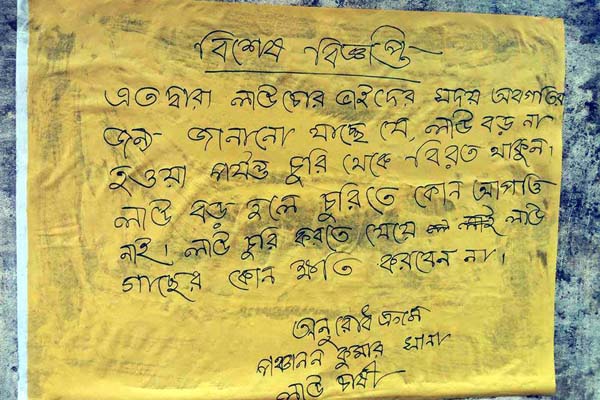 বিশেষ বিজ্ঞপ্তি-
এতদ্বারা লাউ চোর ভাইদের সদয় অবগতির
জন্য জানানো যাচ্ছে যে, লাউ বড় না
হওয়া পর্যন্ত চুরি থেকে বিরত থাকুন।
লাউ বড় হলে চুরিতে কোন আপত্তি
নাই। লাউ চুরি করতে যেয়ে লাউ
গাছের কোন ক্ষতি করবেন না।
অনুরোধ ক্রমে
পঞ্চানন কুমার সানা
লাউ চাষী